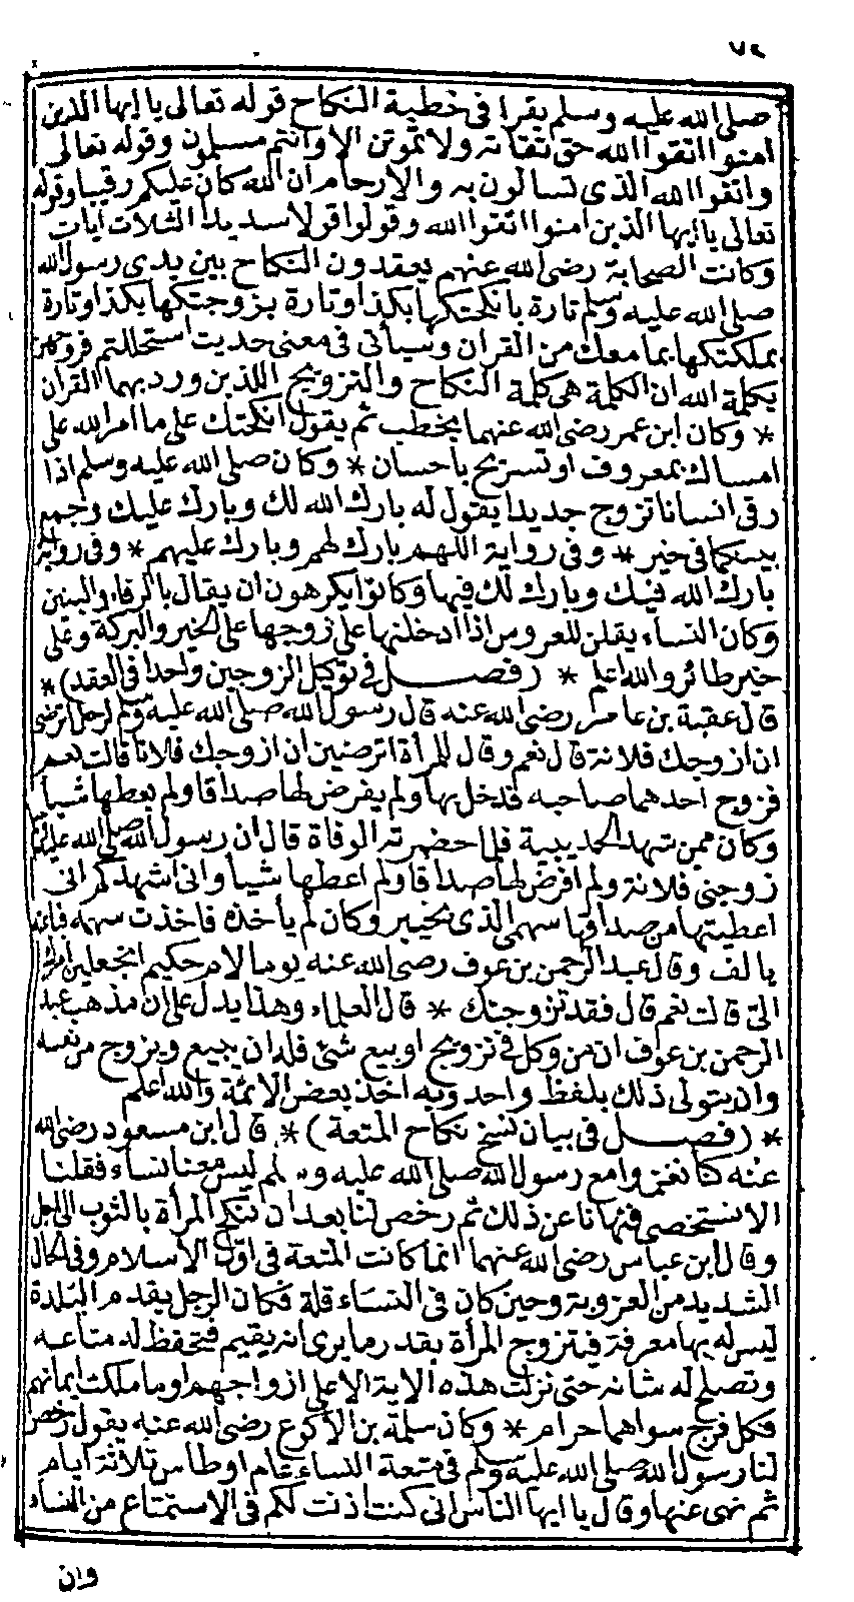 ٧٢
صلى الله عليه وسلم يقرا فى خطبة النكاح قوله تعالى يا ايها الذين
امنوا اتقوا الله حق تقاته ولا تموتن الا وانتم مسلمون وقوله تعالى
واتقوا الله الذى تسالون به والارحام ان الله كان عليكم رقيبا وقوله
تعالى يا ايها الذين امنوا اتقوا الله وقولوا قولا سديدا الثلاث ايات
وكانت الصحابة رضى الله عنهم يعقدون النكاح بين يدى رسول الله
صلى الله عليه وسلم تارة بانكحتكها بكذا وتارة بزوجتكها بكذا وتارة
بملكتكها بما معك من القران وسيأتى فى معنى حديث استحللتم فروجهن
بكلمة الله ان الكلمة هى كلمة النكاح والتزويج اللذين ورد بهما القران
* وكان ابن عمر رضى الله عنهما يخطب ثم يقول انكحتك على ما امر الله على
امساك بمعروف او تسريح باحسان * وكان صلى الله عليه وسلم اذا
رقى انسانا تزوج جديدا يقول له بارك الله لك وبارك عليك وجمع
بينكما فى خير * وفى رواية اللهم بارك لهم وبارك عليهم * وفى رواية
بارك الله فيك وبارك لك فيها وكانوا يكرهون ان يقال بالرفاء والبنين
وكان النساء يقلن للعروس اذا ادخلنها على زوجها على الخير والبركة وعلى
خير طائر والله اعلم * (فصل فى توكيل الزوجين واحدا فى العقد) *
قال عقبة بن عامر رضى الله عنه قال رسول الله صلى الله عليه وسلم لرجل اترضى
ان ازوجك فلانة قال نعم وقال للمرأة اترضين ان ازوجك فلانا قالت نعم
فزوج احدهما صاحبه فدخل بها ولم يفرض لها صداقا ولم يعطها شيأ
وكان ممن شهد الحديبية فلما حضرته الوفاة قال ان رسول الله صلى الله عليه وسلم
زوجنى فلانة ولم افرض لها صداقا ولم اعطها شيأ وانى اشهدكم انى
اعطيتها من صداقها سهمى الذى بخيبر وكان لم يأخذه فاخذت سهمه فباعته
بالف وقال عبد الرحمن بن عوف رضى الله عنه يوما لام حكيم اتجعلين امرك
الىّ قالت نعم قال فقد تزوجتك * قال العلماء وهذا يدل على ان مذهب عبد
الرحمن بن عوف ان من وكل فى تزويج او بيع شئ فله ان يبيع ويزوج من نفسه
وان يتولى ذلك بلفظ واحد وبه اخذ بعض الائمة والله اعلم
* (فصل فى بيان نسخ نكاح المتعة) * قال ابن مسعود رضى الله
عنه كنا نغزوا مع رسول الله صلى الله عليه وسلم ليس معنا نساء فقلنا
الا نستخصى فنهانا عن ذلك ثم رخص لنا بعد ان ننكح المرأة بالثوب الى اجل
وقال ابن عباس رضى الله عنهما انما كانت المتعة فى اول الاسلام وفى الحال
الشديد من العزوبة وحين كان فى النساء قلة فكان الرجل يقدم البلدة
ليس له بها معرفة فيتزوج المرأة بقدر ما يرى انه يقيم فتحفظ له متاعه
وتصلح له شانه حتى نزلت هذه الاية الا على ازواجهم او ما ملكت ايمانهم
فكل فرج سواهما حرام * وكان سلمة بن الاكوع رضى الله عنه يقول رخص
لنا رسول الله صلى الله عليه وسلم فى متعة النساء عام اوطاس ثلاثة ايام
ثم نهى عنها وقال يا ايها الناس انى كنت اذنت لكم فى الاستمتاع من النساء
وان